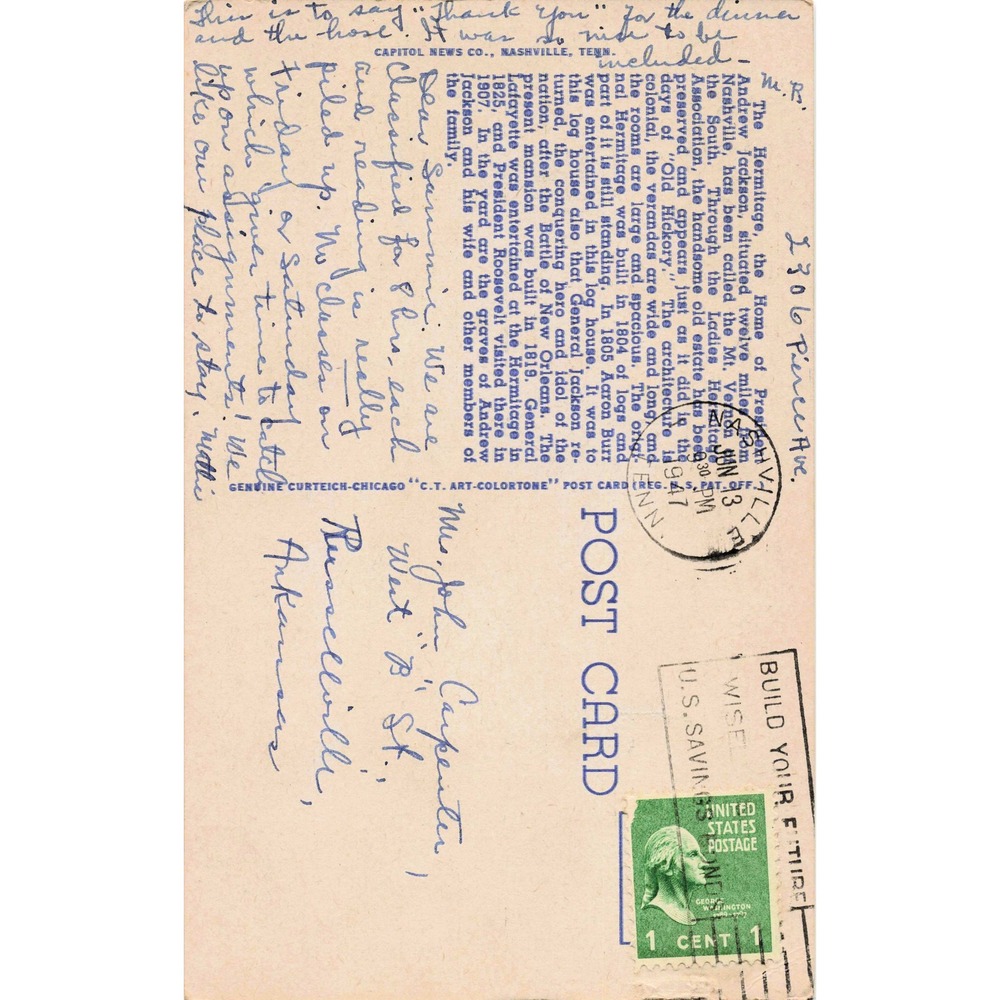 This is to say "Thank you" for the dinner
and the hose. It was so nice to be
included –
M. B.
CAPITOL NEWS CO., NASHVILLE, TENN.
2306 Pierce Ave.
The Hermitage, the Home of President
Andrew Jackson, situated twelve miles from
Nashville, has been called the Mt. Vernon of
the South. Through the Ladies Hermitage
Association, the handsome old estate has been
preserved and appears just as it did in the
days of "Old Hickory." The architecture is
colonial, the verandas are wide and long and
the rooms are large and spacious. The origi-
nal Hermitage was built in 1804 of logs and
part of it is still standing. In 1805 Aaron Burr
was entertained in this log house. It was to
this log house also that General Jackson re-
turned, the conquering hero and idol of the
nation, after the Battle of New Orleans. The
present mansion was built in 1819. General
Lafayette was entertained at the Hermitage in
1825, and President Roosevelt visited there in
1907. In the yard are the graves of Andrew
Jackson and his wife and other members of
the family.
Dear Sammie: We are
classified for 8 hrs. each
and reading is really
piled up. No classes on
Friday or Saturday
which gives time to catch
up on assignments! We
like our place to stay. Mattie
GENUINE CURTEICH-CHICAGO "C.T. ART-COLORTONE" POST CARD (REG. U.S. PAT. OFF.)
POST CARD
NASHVILLE
JUN 13
9 30 PM
1947
TENN.
BUILD YOUR FUTURE
WISELY
U.S. SAVINGS BONDS
UNITED
STATES
POSTAGE
GEORGE
WASHINGTON
1 CENT 1
Mrs. John Carpenter,
West "B" St.,
Russellville,
Arkansas